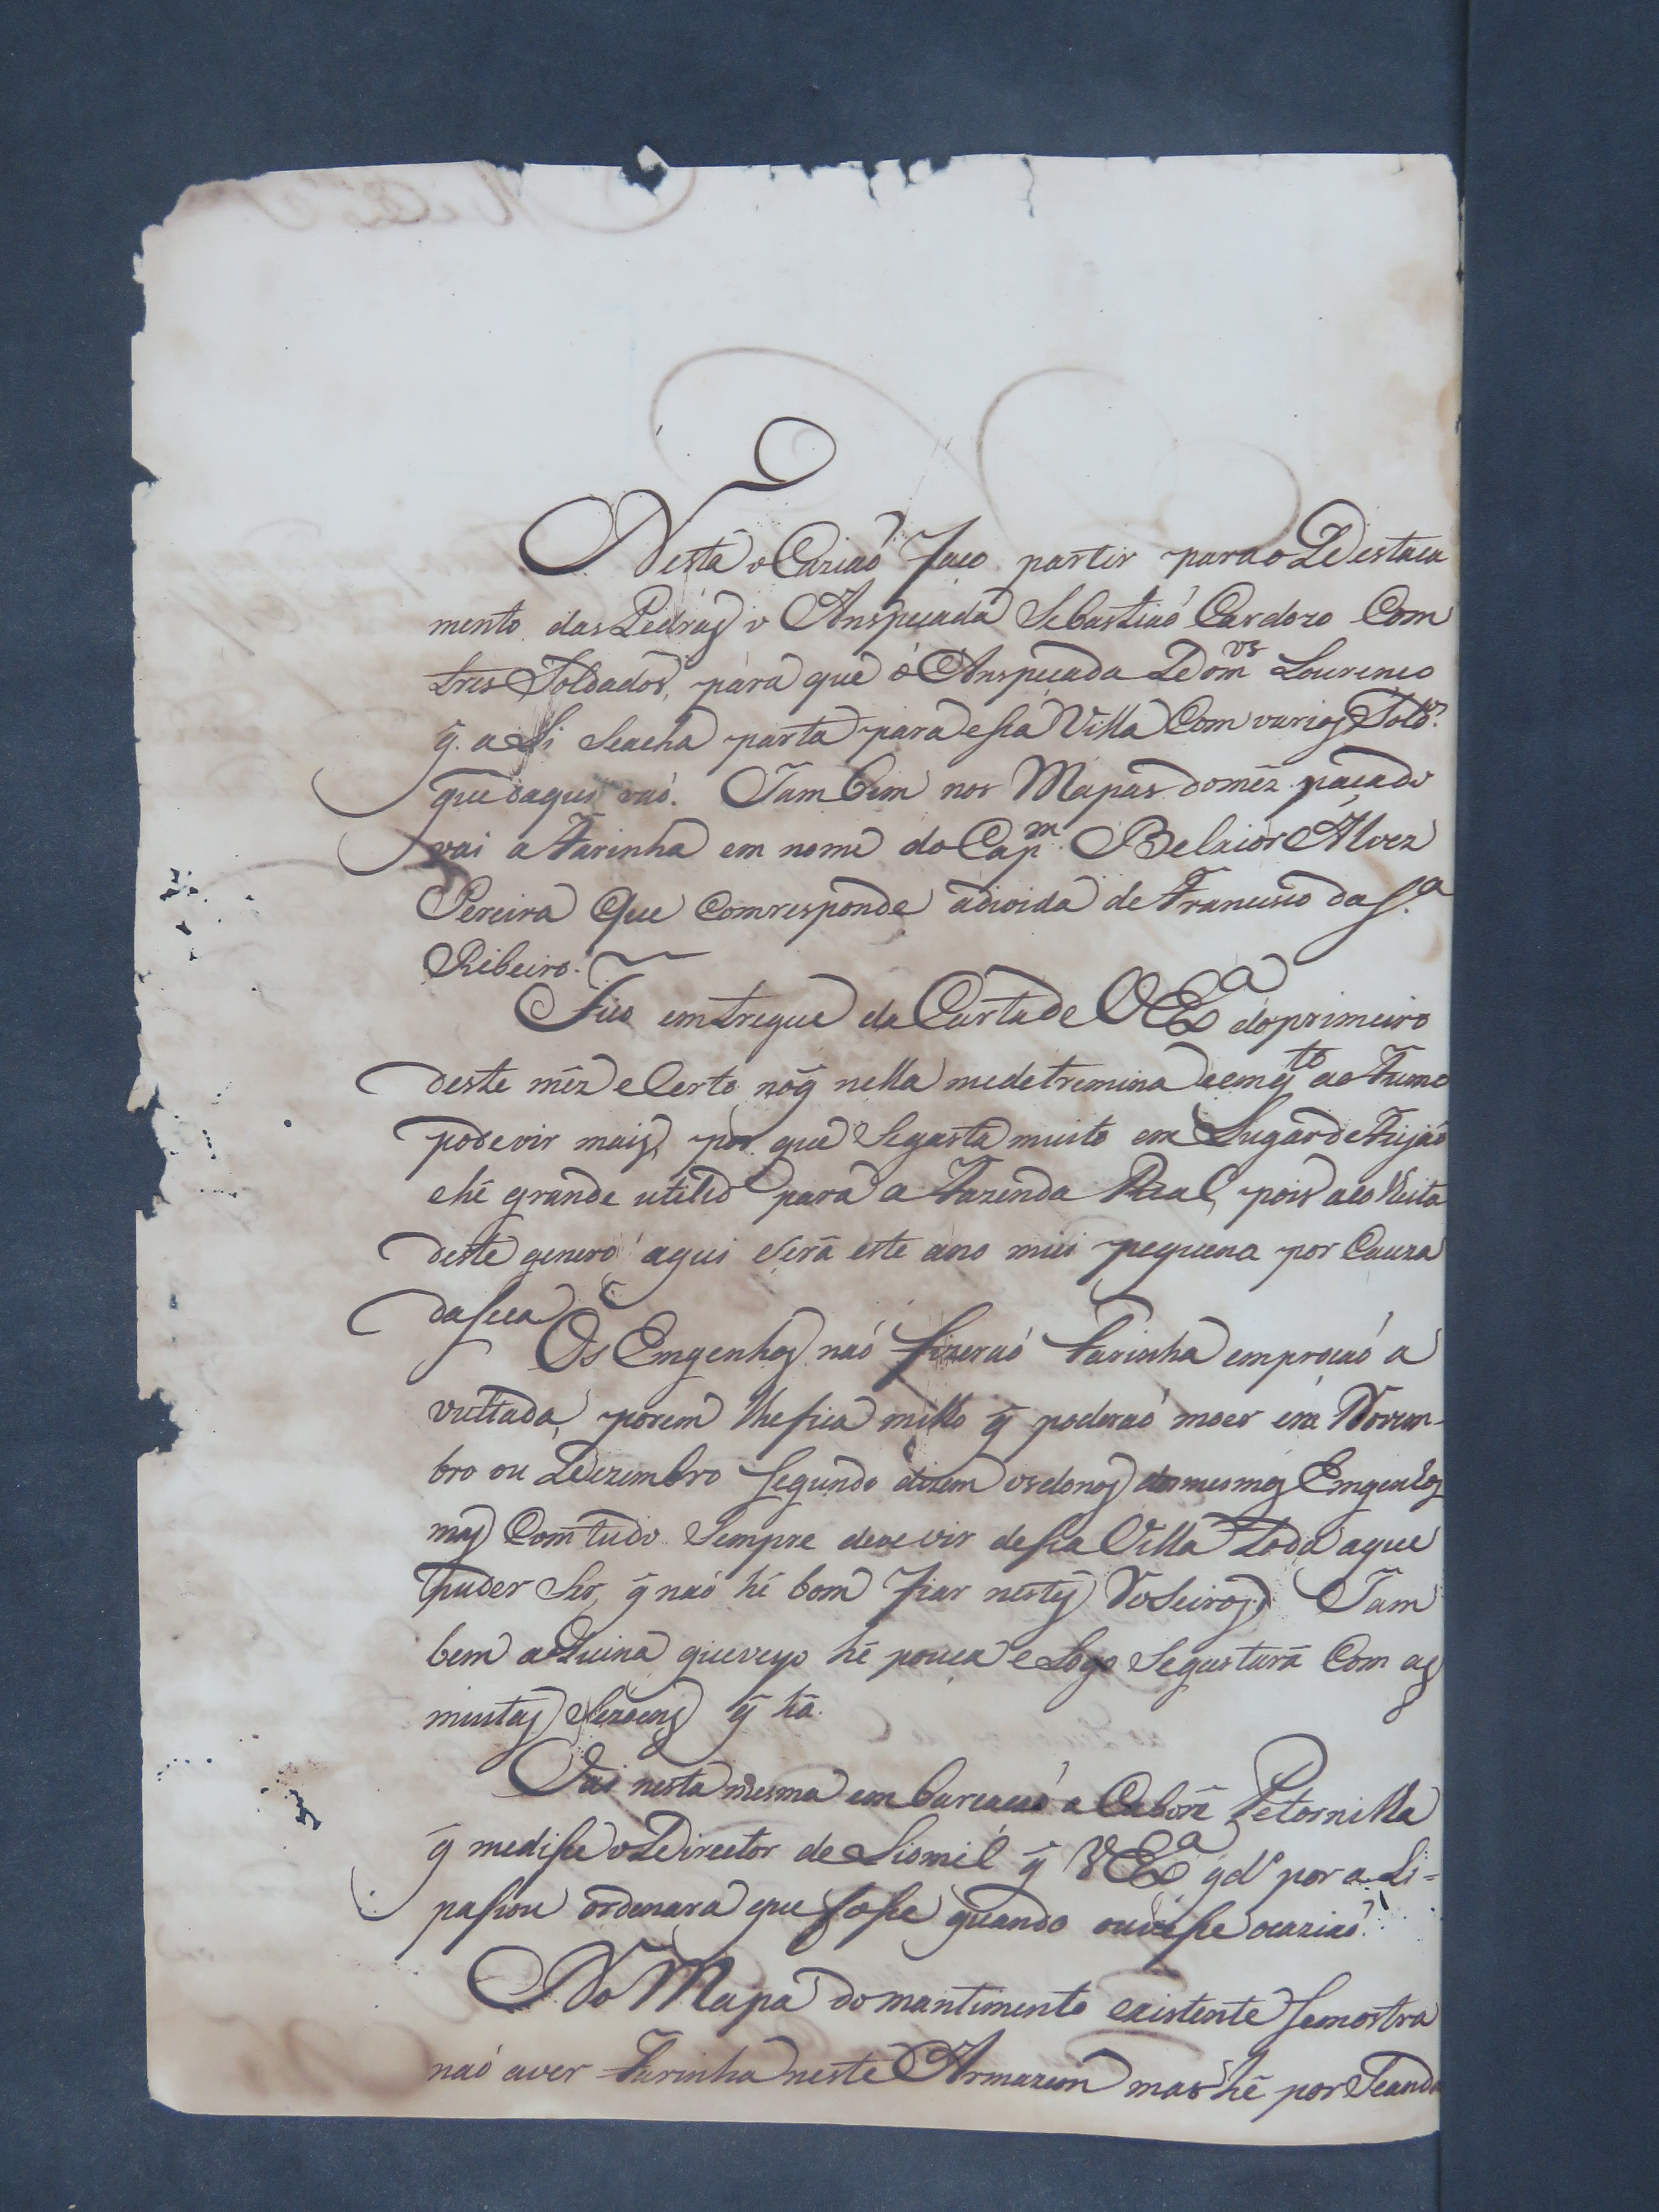 Nesta o Cazíaõ Faço partir para o Destaca
mento das Pedras o Anspeçada Sebastiaõ Cardozo Com
tres Soldados, para que o Anspeçada Dom.os Lourenço
q̃. aLi Seacha parta para esta Villa Com varios Sold.os
que daqui vaõ. Tambem nos Mapas do mêz paçado
vai a Farinha em nome do Cap.m Belxior Alvez
Pereira Que Comresponde adivida de Francisco da S.a
Ribeiro.
Fico emtregue da Carta de VEx.a do primeiro
deste mêz eCerto no q̃ nella medetremina eemq.to ao Fumo
pode vir mais, por que Segasta muito em Lugar de Feijaõ
e hé grande utilid.e para a Fazenda Real, pois aColheita
deste genero aqui Será este ano mui pequena por Cauza
da seca
Os Emgenhos naõ fizeraõ farinha emproçaõ a
vultada, porem lhe fica milho q̃ poderaõ moer em Novem-
bro ou Dezembro Segundo dizem os donos dos mesmos Emgenhos
mas Com tudo Sempre deve vir desta Villa toda aque
puder Ser, q̃ naõ hé bom fiar nestes Roceiros. Tam
bem a quina que veyo hé pouca eLogo Segastará Com as
muitas Sezoens q̃ há.
Vai nesta mesma embarcaçaõ a Cabore Petornilla
q̃ medisse o Director de Lismil q̃ VEx.a q.do por a Li=
passou ordenara que fosse quando ouvesse ocaziaõ.
No Mapa do mantimento existente Semostra
naõ aver Farinha neste Armazem mas hé por Seanda